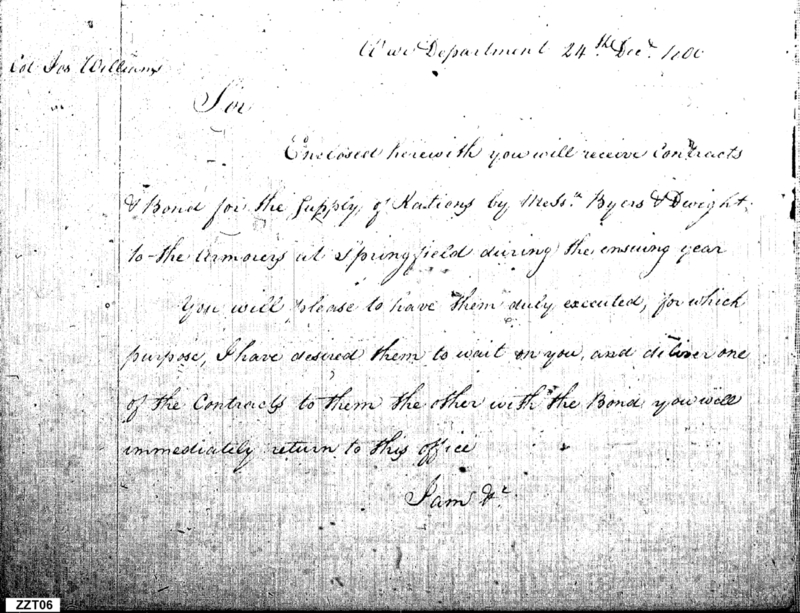 War Department 24th Decr. 1800
Col Jos Williams
Sir
Enclosed herewith you will receive Contracts
& Bond for the Supply of Rations by Messrs. Byers & Dwight
to the Armorers at Springfield during the ensuing year
You will please to have them duly executed, for which
purpose, I have desired them to wait on you, and deliver one
of the Contracts to them the other with the Bond you will
immediately return to this office
I am &c
ZZT06